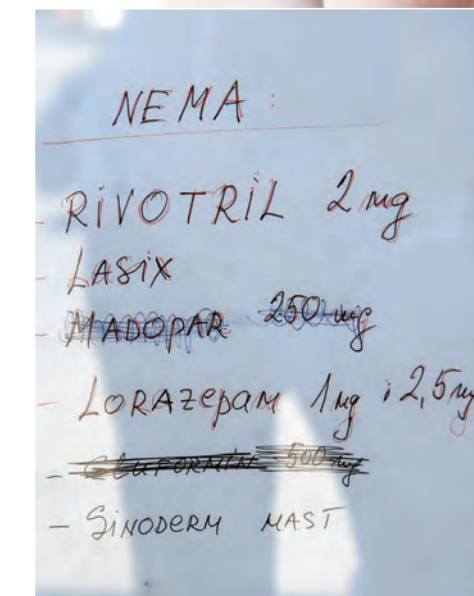 NEMA:
- RIVOTRIL 2 mg
- LASIX
- MADOPAR 250 mg
- LORAZEPAM 1 mg i 2,5 mg
- GLUFORMIN 500 mg
- SINODERM MAST